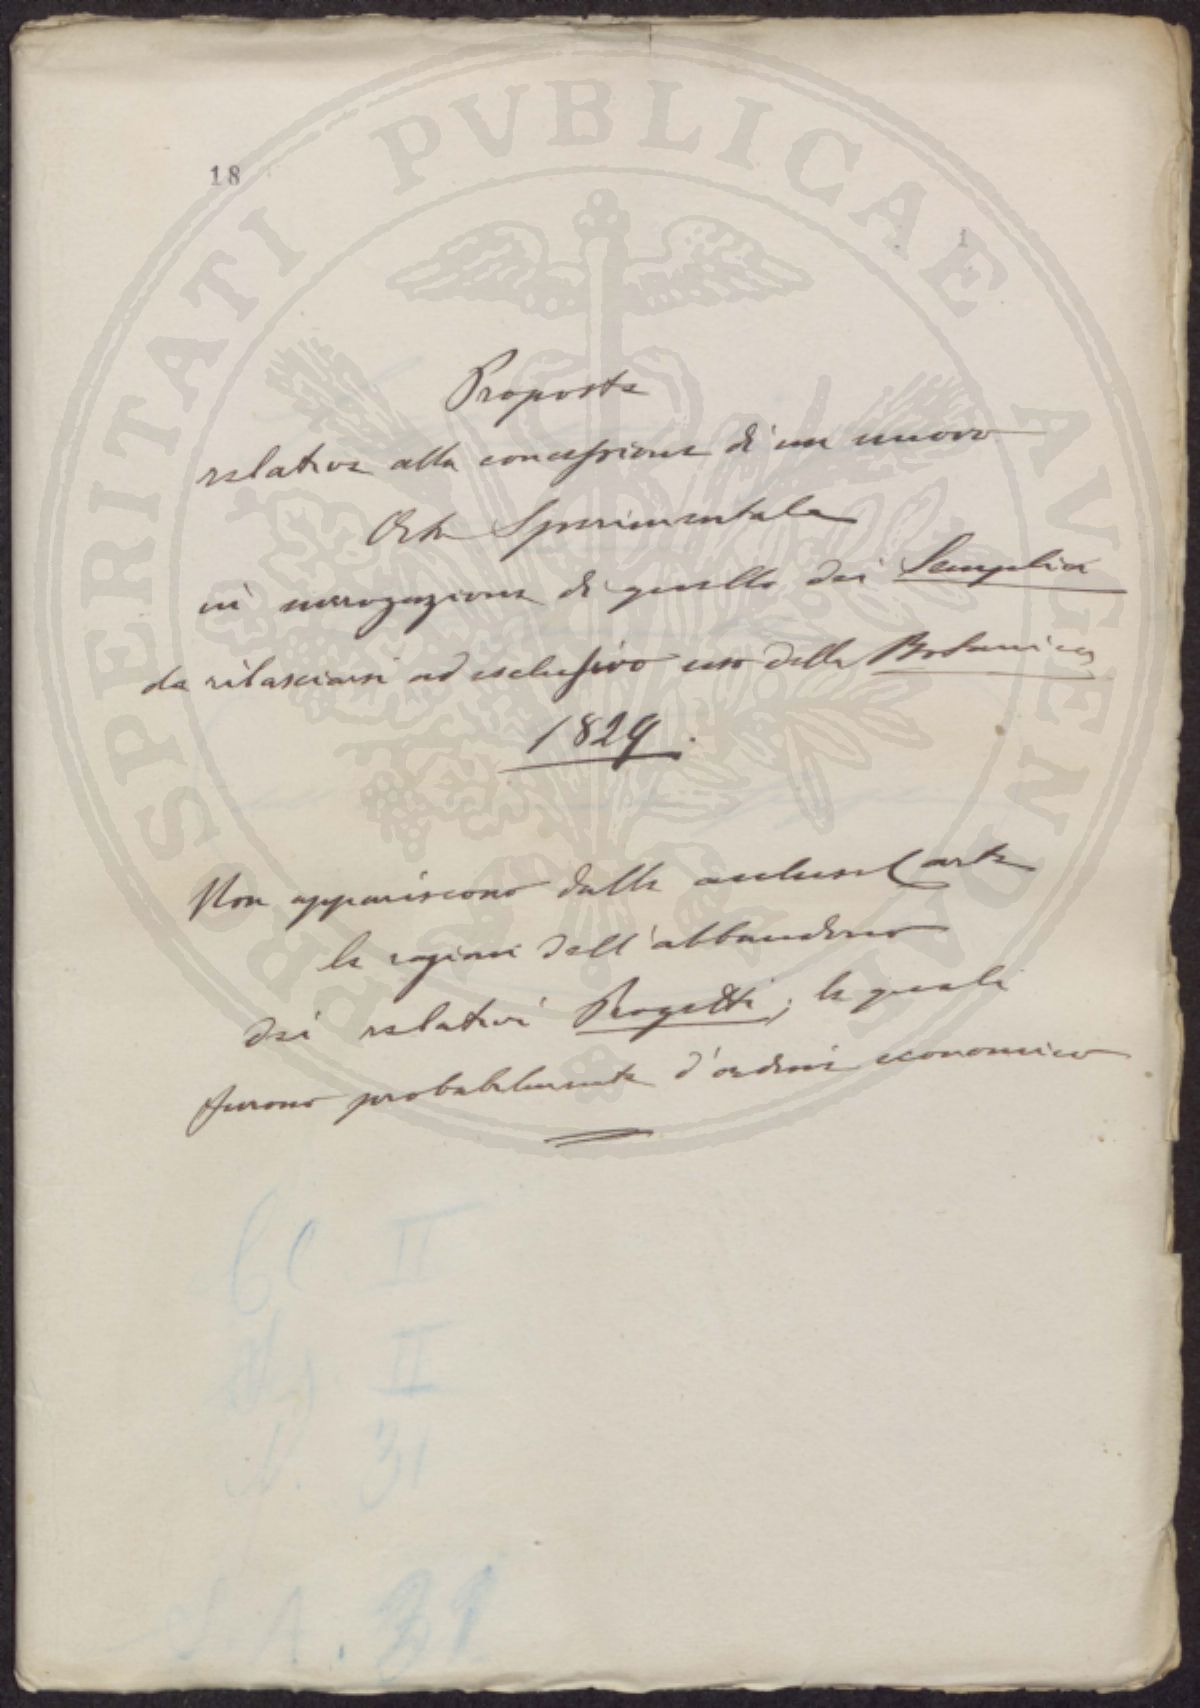 PROSPERITATI PVBLICAE AVGENDAE
18
1
Proposte
relative alla concessione di un nuovo
Orto Sperimentale
in surrogazione di quello dei Semplici
da rilasciarsi ad esclusivo uso della Botanica
1829.
Non appariscono dalle accluse Carte
le ragioni dell'abbandono
dei relativi Progetti, le quali
furono probabilmente d'ordine economico
II
II
N. 31
A. 31